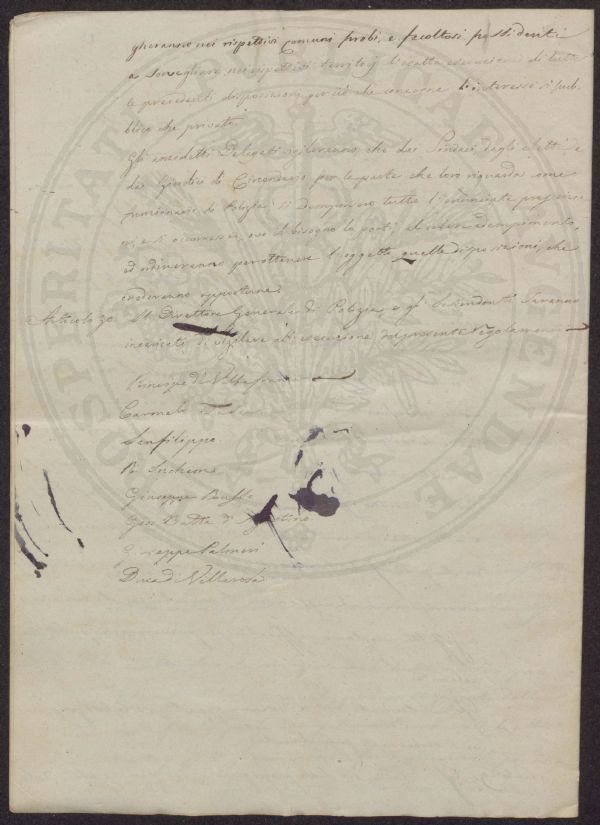 gheranno nei rispettivi comuni probi, e facoltosi possidenti
a sorvegliare nei rispettivi territorj l'esatta esecuzione di tutte
le precedenti disposizioni per ciò che concerne l'interesse si pub-
blico che privato.
Gli anzidetti Delegati vigileranno, che dai Sindaci dagli eletti e
dai Giudici di Circondario per la parte che loro riguarda come
funzionarj di Polizia si
e se occorresse, o di bisogno
ed ordineranno per ottenere l'oggetto quelle disposizioni, che
crederanno opportune.
Articolo 30 Il Direttore Generale di Polizia, e gl' Intendenti saranno
incaricati di vigilare all'esecuzione del presente Regolamento
Principe di Villafranca
Carmelo
Sanfilippo
Giuseppe
Gio: Batta d'Agostino
Giuseppe Palmeri
Duca di Villarosa